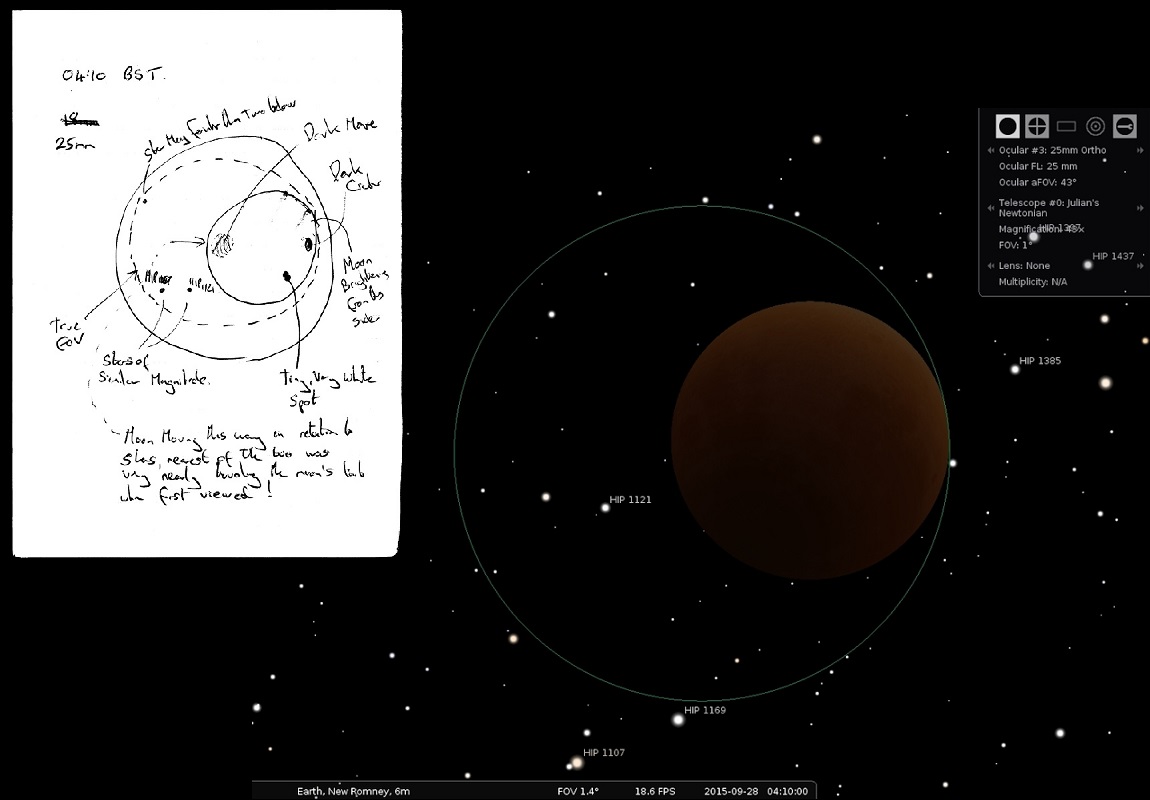 04:10 BST.
18
25mm
Star Very Fainter than Two below
Dark Mare
Dark
Crater
Moon
Brightens
from this
side
HIP 1121
True
FOV
Stars of
Similar Magnitude.
Tiny, Very White
Spot
Moon Moving this way in relation to
stars, nearest of the two was
very nearly touching the moon's limb
when first viewed!
Ocular #3: 25mm Ortho
Ocular FL: 25 mm
Ocular aFOV: 43°
Telescope #0: Julian's
Newtonian
Magnification:
FOV: 1°
HIP 1437
Lens: None
Multiplicity: N/A
HIP 1385
HIP 1121
HIP 1169
HIP 1107
Earth, New Romney, 6m FOV 1.4° 18.6 FPS 2015-09-28 04:10:00